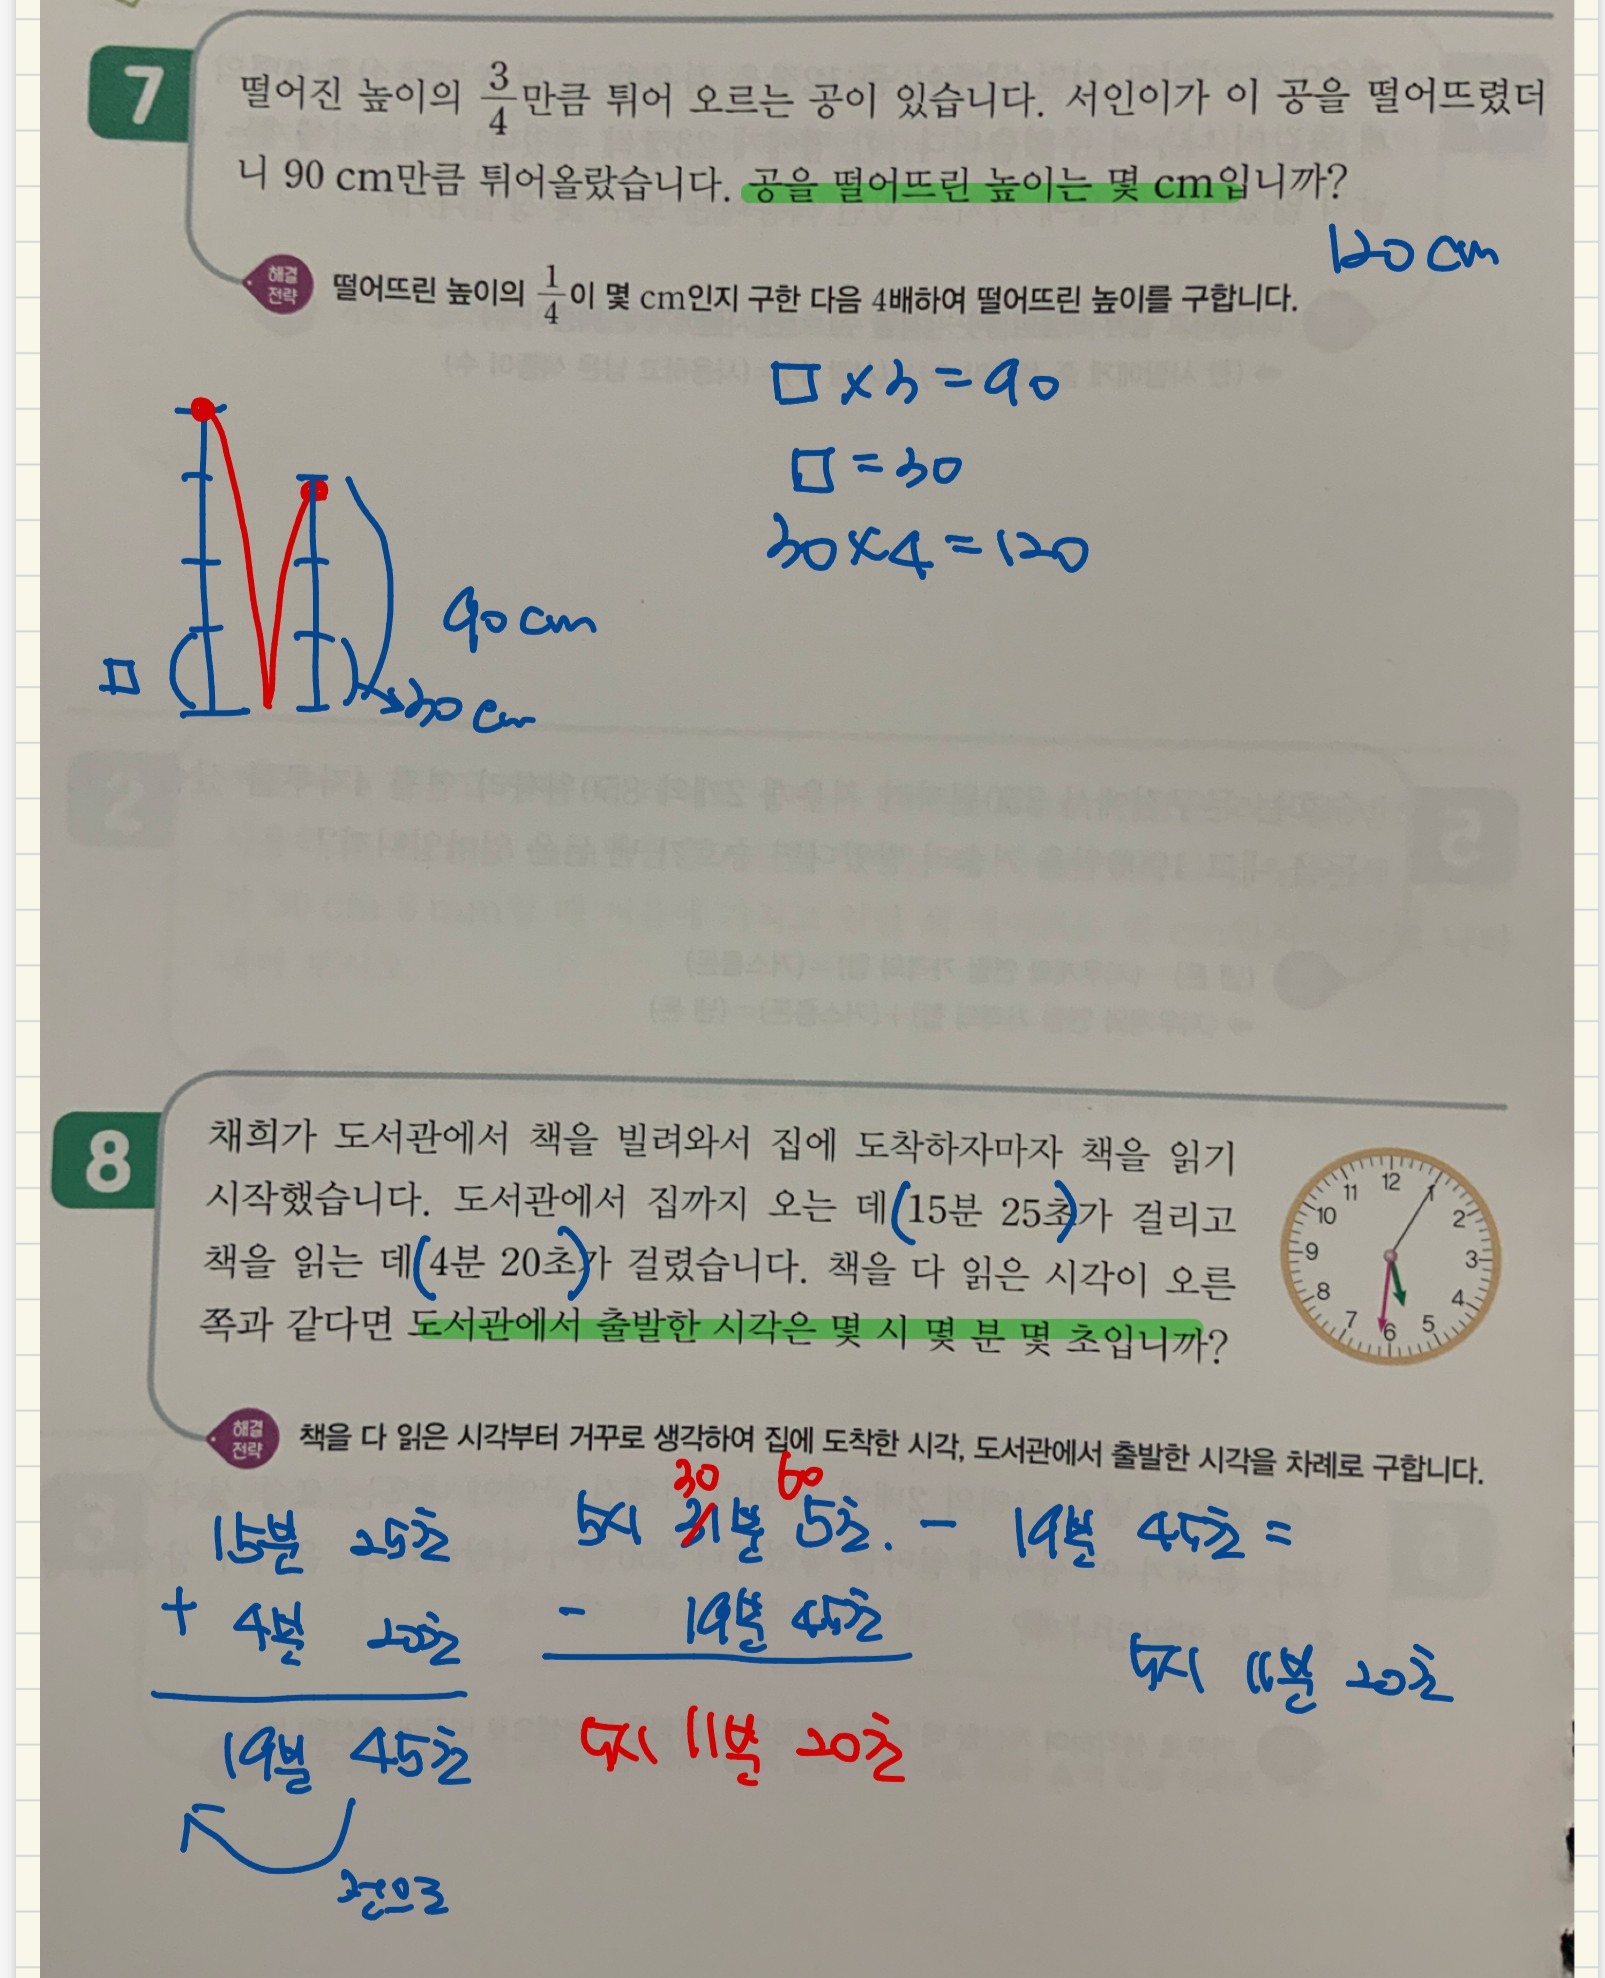 7
떨어진 높이의 3/4만큼 튀어 오르는 공이 있습니다. 서인이가 이 공을 떨어뜨렸더
니 90 cm만큼 튀어올랐습니다. 공을 떨어뜨린 높이는 몇 cm입니까?
120 cm
해결
전략
떨어뜨린 높이의 1/4이 몇 cm인지 구한 다음 4배하여 떨어뜨린 높이를 구합니다.
□×3=90
□=30
30×4=120
90 cm
□
30 cm
8
채희가 도서관에서 책을 빌려와서 집에 도착하자마자 책을 읽기
시작했습니다. 도서관에서 집까지 오는 데(15분 25초)가 걸리고
책을 읽는 데(4분 20초)가 걸렸습니다. 책을 다 읽은 시각이 오른
쪽과 같다면 도서관에서 출발한 시각은 몇 시 몇 분 몇 초입니까?
12
1
2
3
4
5
6
7
8
9
10
11
해결
전략
책을 다 읽은 시각부터 거꾸로 생각하여 집에 도착한 시각, 도서관에서 출발한 시각을 차례로 구합니다.
30 60
15분 25초
+ 4분 20초
19분 45초
전으로
5시 31분 5초. - 19분 45초 =
- 19분 45초
5시 11분 20초
5시 11분 20초